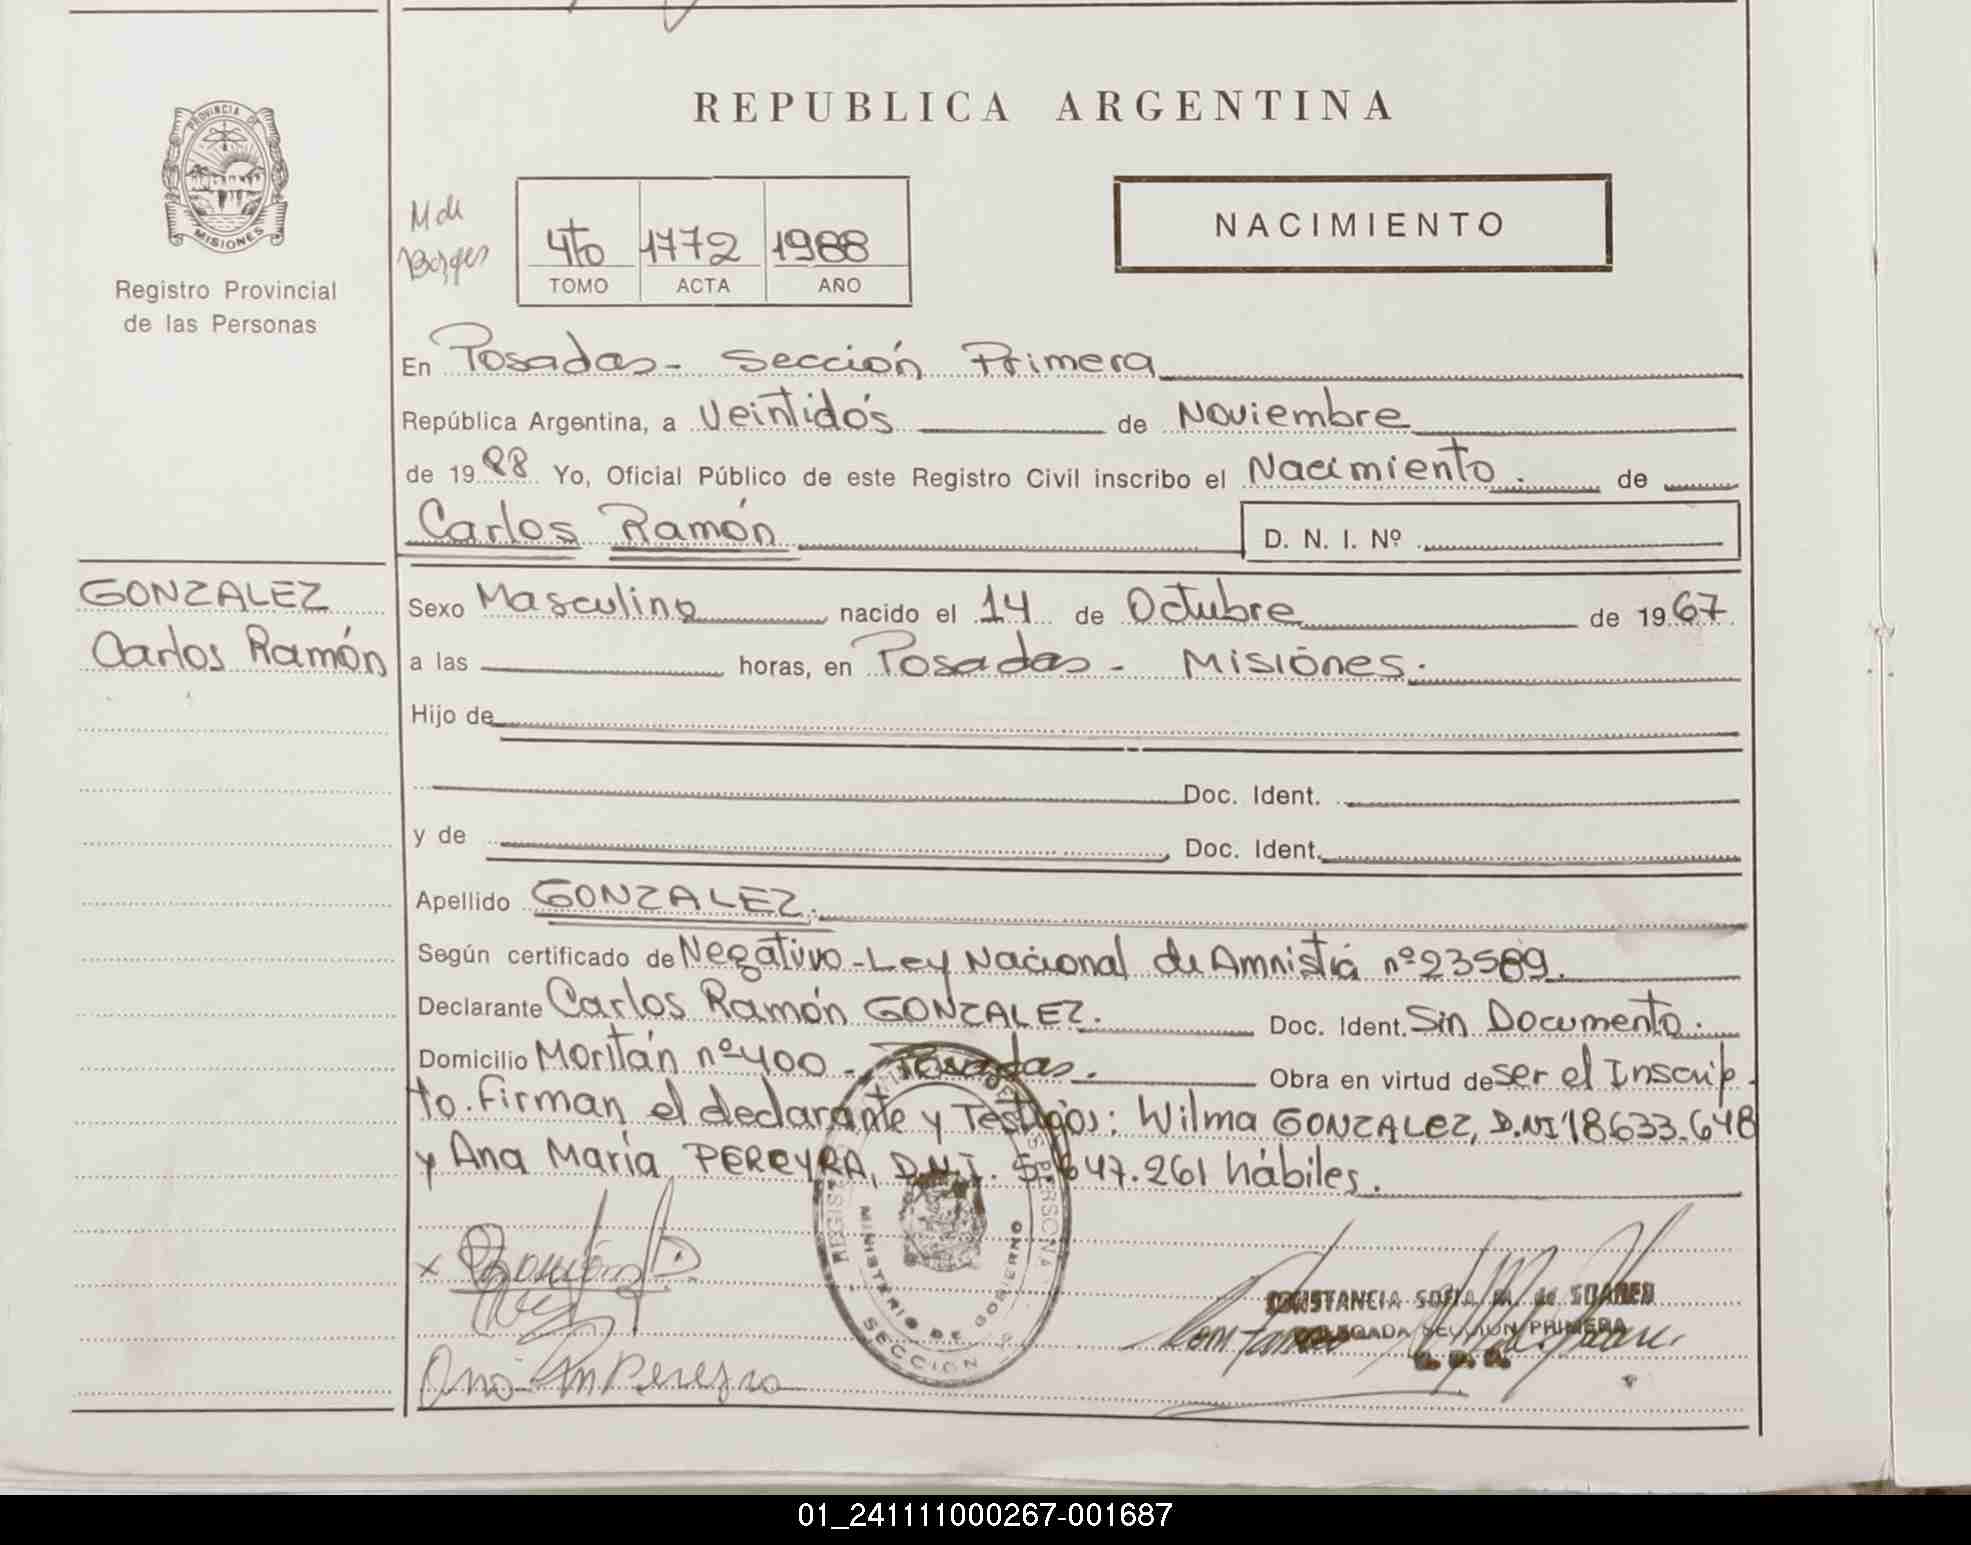 REPUBLICA ARGENTINA
PROVINCIA DE
MISIONES
Registro Provincial
de las Personas
M de
Borges
4to 1772 1988
TOMO ACTA AÑO
NACIMIENTO
En Posadas - Sección Primera
República Argentina, a Veintidós de Noviembre
de 1988 Yo, Oficial Público de este Registro Civil inscribo el Nacimiento. de
Carlos Ramón D. N. I. Nº
GONZALEZ
Carlos Ramón
Sexo Masculino nacido el 14 de Octubre de 1967
a las horas, en Posadas - Misiones.
Hijo de
Doc. Ident.
y de Doc. Ident.
Apellido GONZALEZ.
Según certificado de Negativo - Ley Nacional de Amnistía nº 23589.
Declarante Carlos Ramón GONZALEZ. Doc. Ident. Sin Documento.
Domicilio Moritán nº 400 - Posadas. Obra en virtud de ser el Inscrip-
to. Firman el declarante y Testigos: Wilma GONZALEZ, D.NI 18.633.648
y Ana María PEREYRA, D.N.I. 5.647.261 hábiles.
MINISTERIO DE GOBIERNO
SECCION
Ana M Pereyra
CONSTANCIA SOFIA M. de SUAREZ
DELEGADA SECCION PRIMERA
01_241111000267-001687